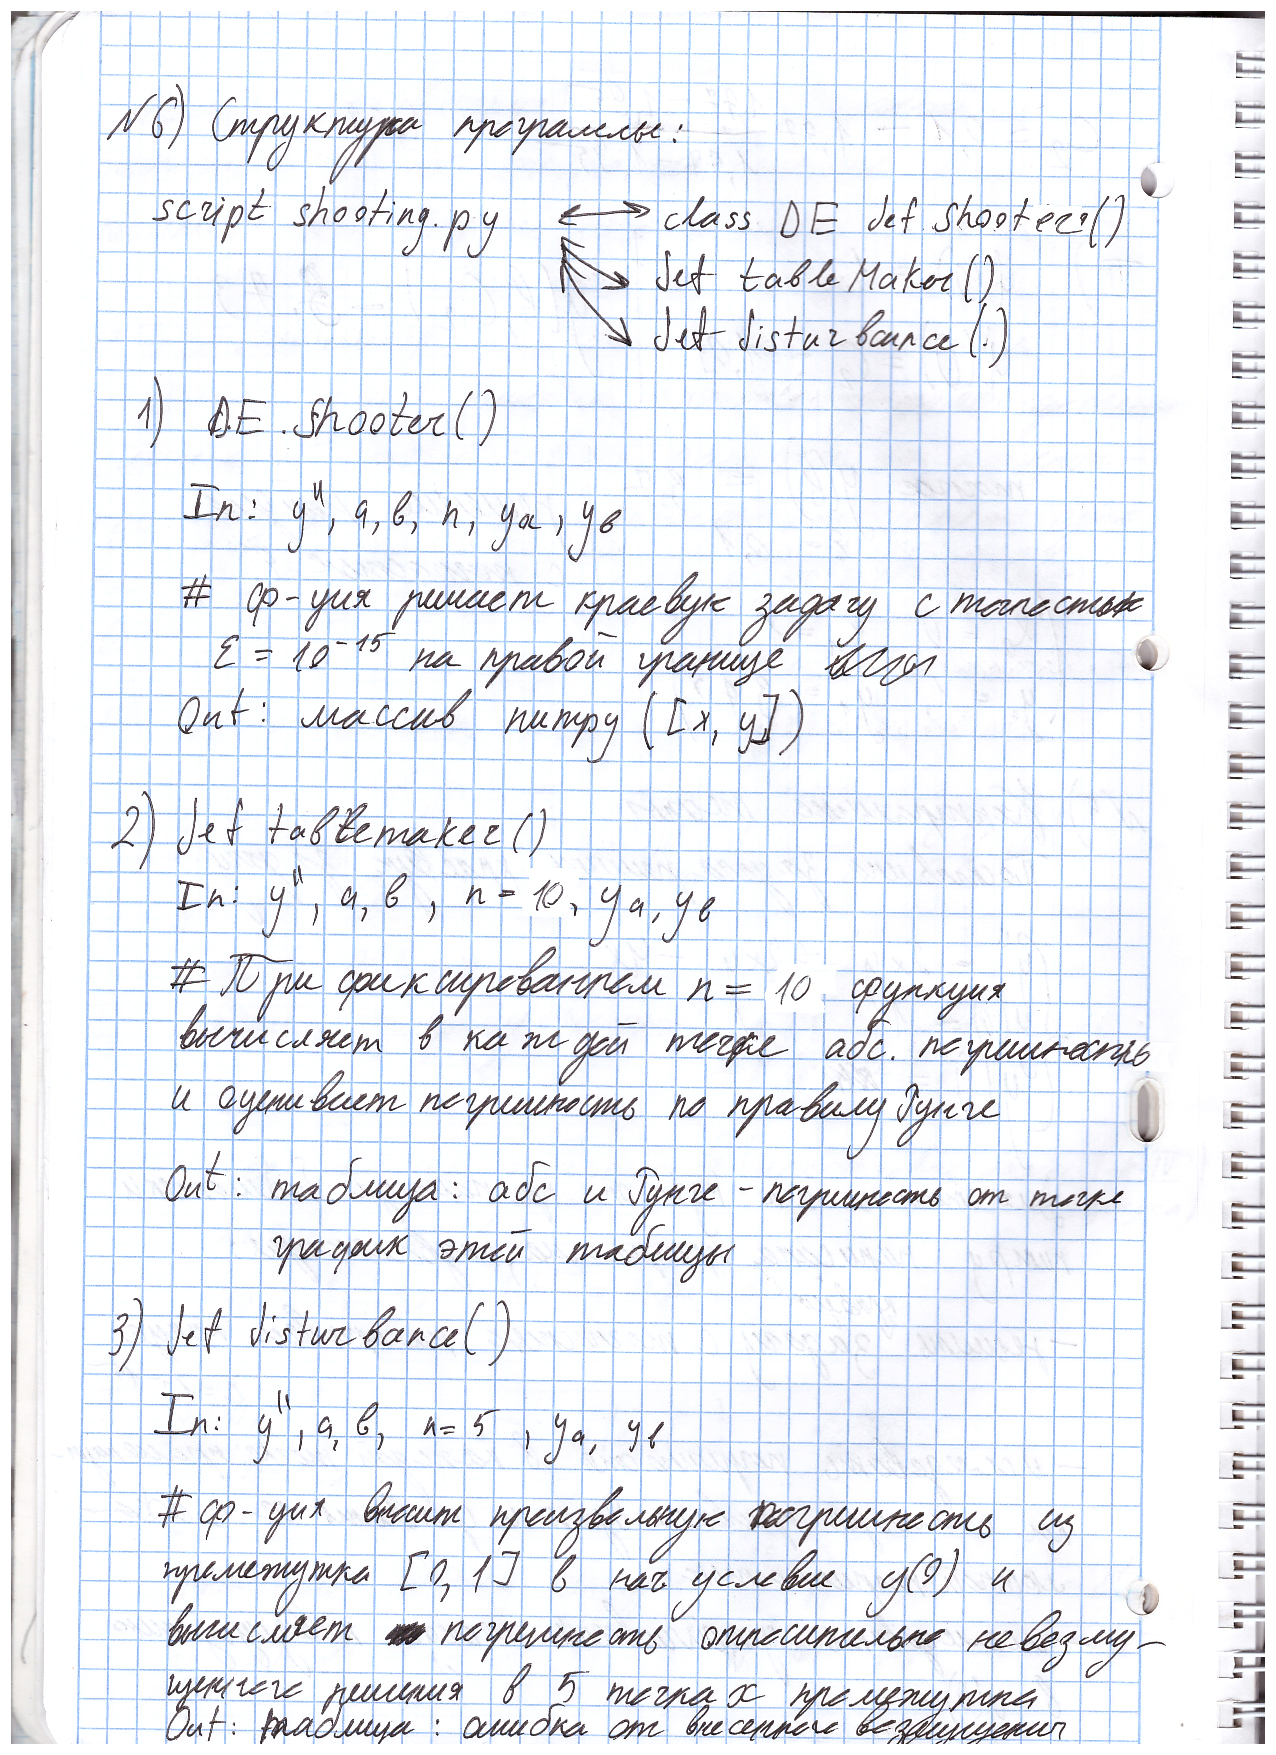 N6) Структура программы:
script shooting.py ↔ class DE def Shooter()
def tableMaker()
def disturbance(.)
1) DE.Shooter()
In: y", a, b, n, ya, yb
# ф-ция решает краевую задачу с точностью
ε = 10⁻¹⁵ на правой границе
Out: массив numpy ([x, y])
2) def tablemaker()
In: y", a, b, n = 10, ya, yb
# При фиксированном n = 10 функция
вычисляет в каждой точке абс. погрешность
и оценивает погрешность по правилу Рунге
Out: таблица: абс и Рунге - погрешность от точке
график этой таблицы
3) def disturbance()
In: y", a, b, n = 5, ya, yb
# ф-ция вносит произвольную погрешность из
промежутка [0, 1] в нач условие y(0) и
вычисляет погрешность относительно невозму-
щенного решения в 5 точках промежутка
Out: таблица: ошибка от внесенного возмущения